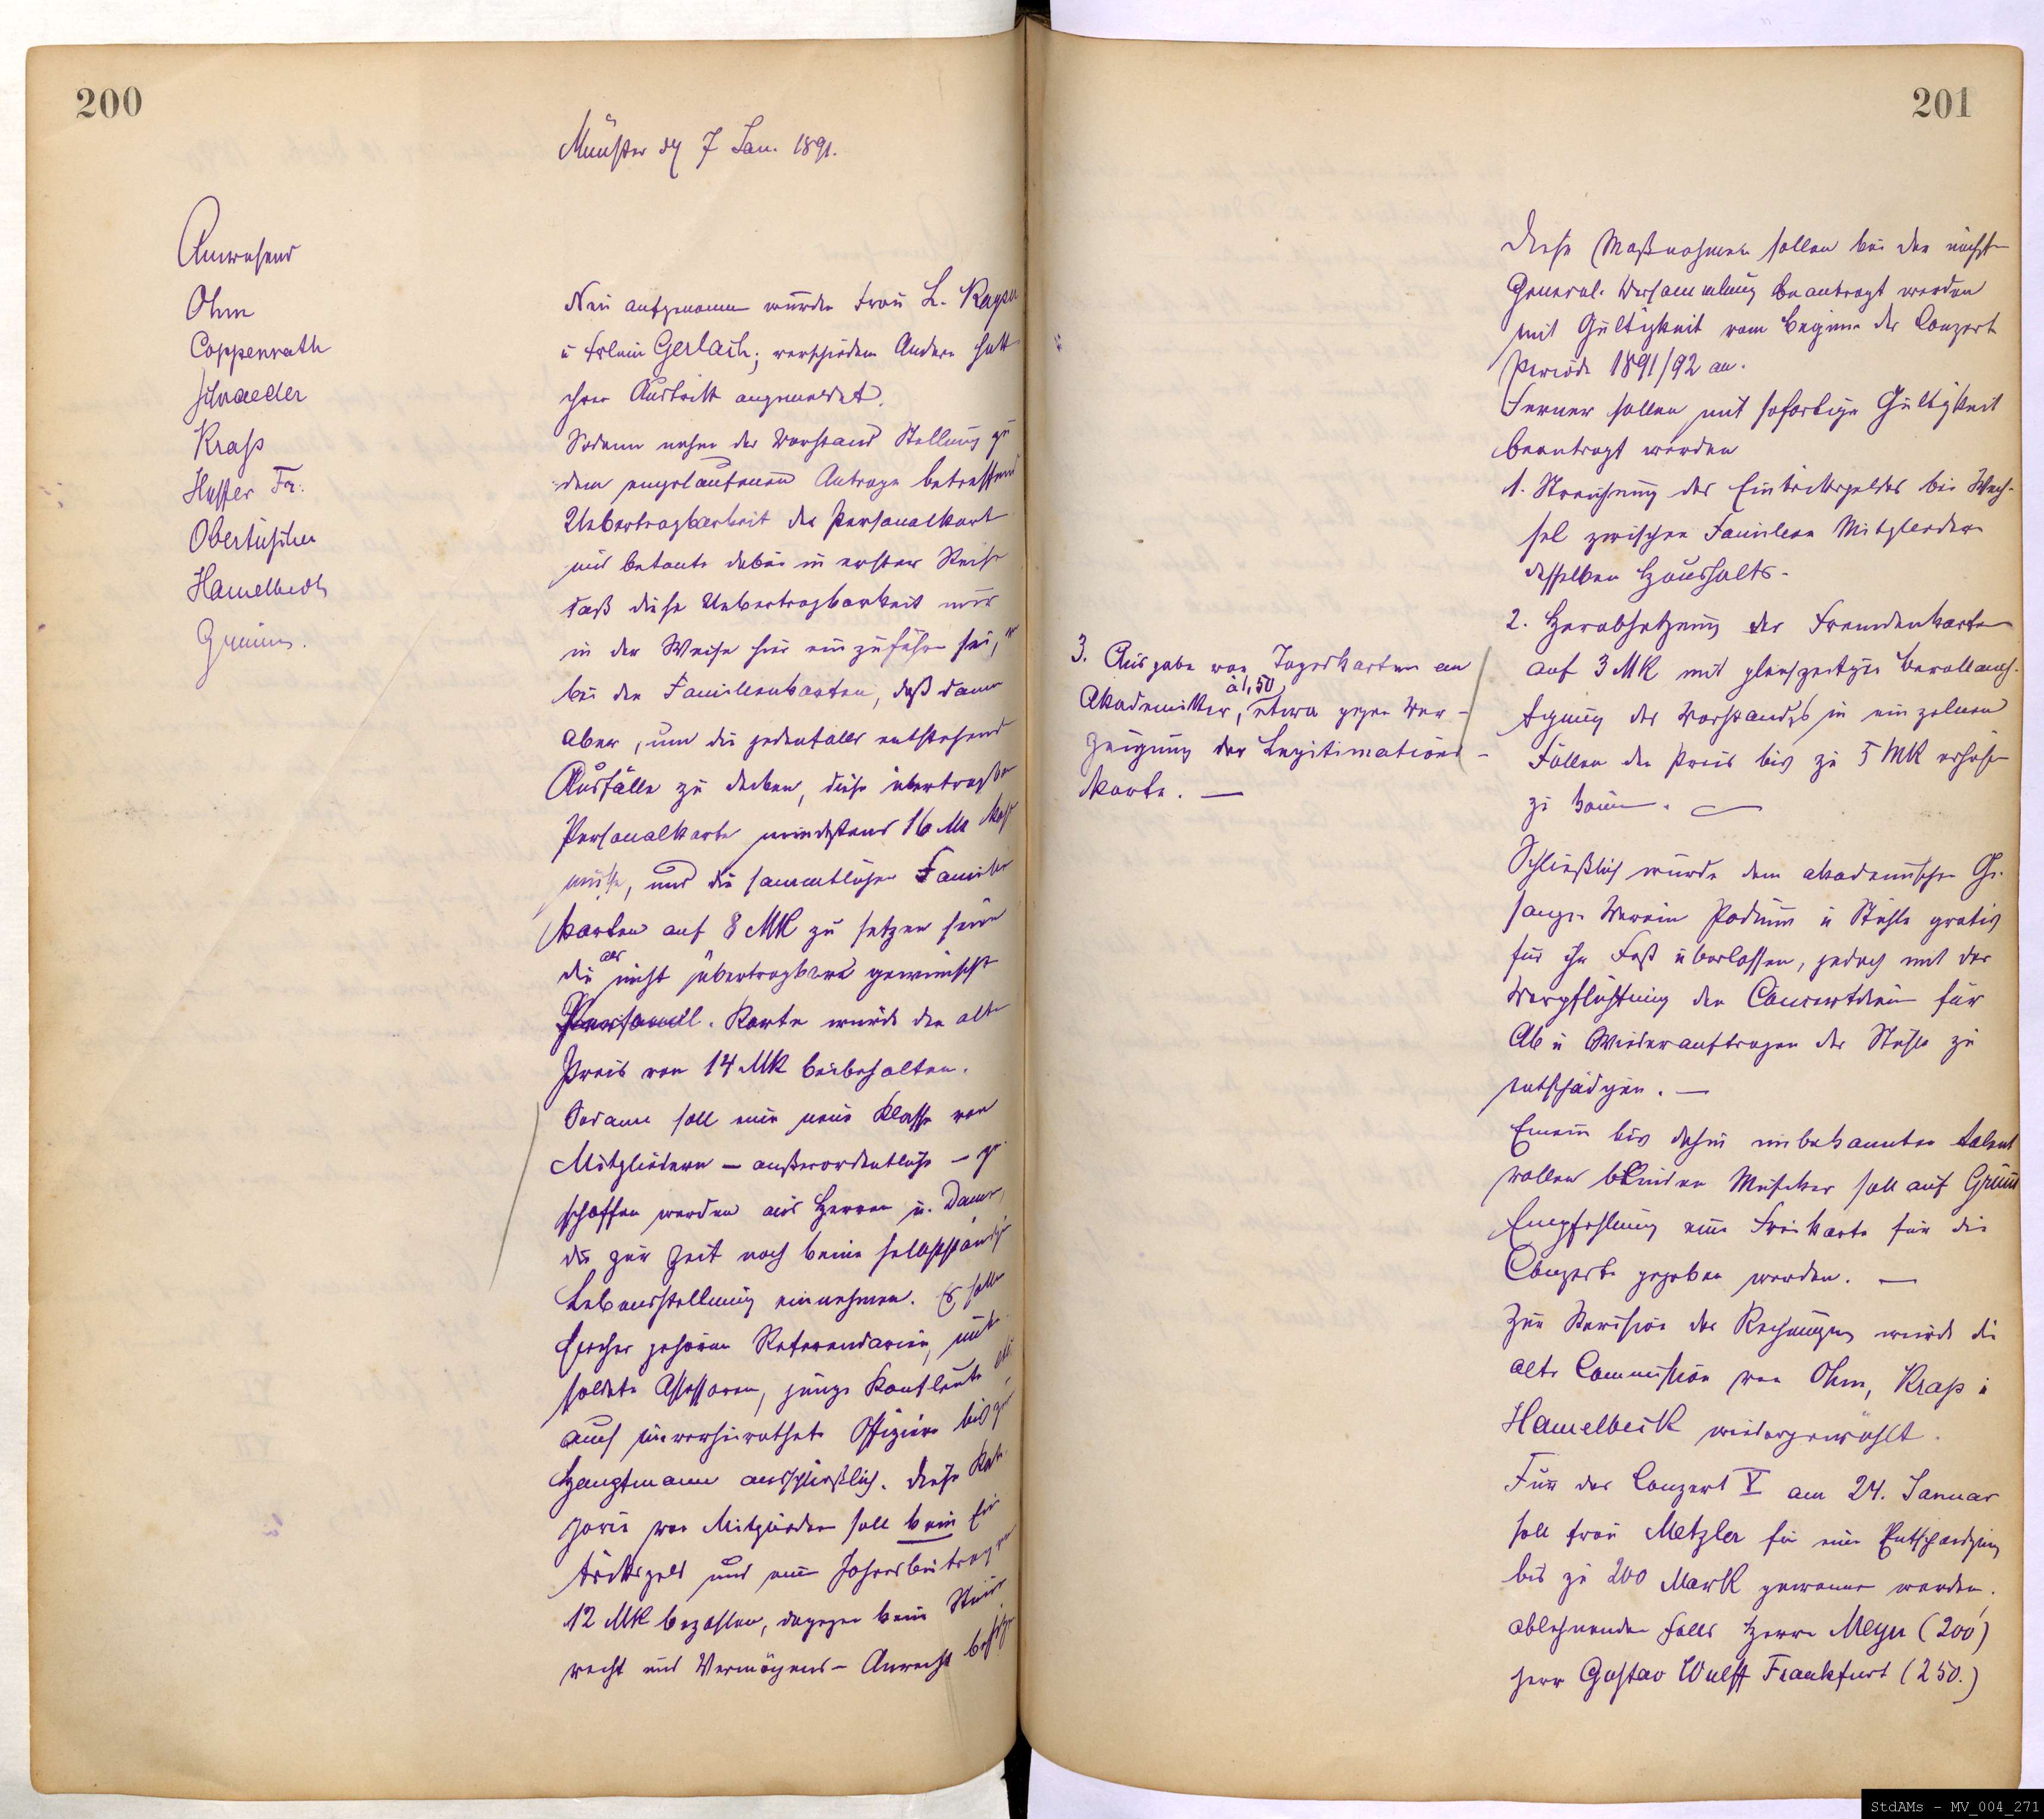 200
Münster d. 7 Jan. 1891.
Anwesend
Ohm
Coppenrath
Schraeder
Krass
Hüffer Fr.
Obertüschen
Hamelbeck
Grimm.
Neu aufgenommen wurden Frau L. Kayser
u Frlein Gerlach; verschiedene Andere hatten
ihren Austritt angemeldet.
Sodann nahm der Vorstand Stellung zu
dem eingelaufenen Antrage betreffend
Uebertragbarkeit der Personalkarten
und betonte dabei in erster Reihe
daß diese Uebertragbarkeit nur
in der Weise hier einzuführen sei,
bei den Familienkarten, daß dann
aber, um die jedenfalls entstehenden
Ausfälle zu decken, diese übertragbare
Personalkarte mindestens 16 M kosten
müsse, und die sammtlichen Familien
karten auf 8 MK zu setzen seien
die als nicht übertragbare gewünschte
Personal. Karte würde den alten
Preis von 14 MK beibehalten.
Sodann soll eine neue Klasse von
Mitgliedern – außerordentliche – ge
schaffen werden aus Herren u. Damen,
die zur Zeit noch keine selbstständige
Lebensstellung einnehmen. Es sollen
hierher gehören Referendarien, unbe
soldete Assessoren, junge Kaufleute etc
auch unverheirathete Offiziere bis zum
Hauptmann ausschließlich. Diese Kate
gorie von Mitgliedern soll kein Ein
trittsgeld und einen Jahresbeitrag von
12 MK bezahlen, dagegen kein Stimm
recht und Vermögens-Anrecht besitzen
201
Diese Maßnahmen sollen bei der nächsten
General-Versammlung beantragt werden
mit Gültigkeit vom Beginn der Conzert
Periode 1891/92 an.
Ferner sollen mit sofortiger Gültigkeit
beantragt werden
1. Streichung des Eintrittsgeldes bei Wech-
sel zwischen Familien Mitgliedern
desselben Haushalts.
2. Herabsetzung der Fremdenkarten
auf 3 MK mit gleichzeitiger Bevollmäch-
tigung des Vorstandes in einzelnen
Fällen den Preis bis zu 5 MK erhöhen
zu können.
3. Ausgabe von Tageskarten an
Akademiker, à 1,50 etwa gegen Vor-
zeigung der Legitimations-
karte. —
Schließlich wurde dem akademischen Ge-
sang-Verein Podium u Stühle gratis
für ihr Fest überlassen, jedoch mit der
Verpflichtung den Concertdiener für
Ab u Wiederauftragen der Stühle zu
entschädigen. —
Einem bis dahin unbekannten talent
vollen blinden Musiker soll auf Grimm
Empfehlung eine Freikarte für die
Conzerte gegeben werden. —
Zur Revision der Rechnungen wurde die
alte Commission von Ohm, Krass u
Hamelbeck wiedergewählt.
Für das Conzert V am 24. Januar
soll Frau Metzler für eine Entschädigung
bis zu 200 Mark gewonnen werden.
ablehnenden Falls Herrn Meyn (200)
Herr Gustav Wulff Frankfurt (250.)
StdAMs - MV_004_271